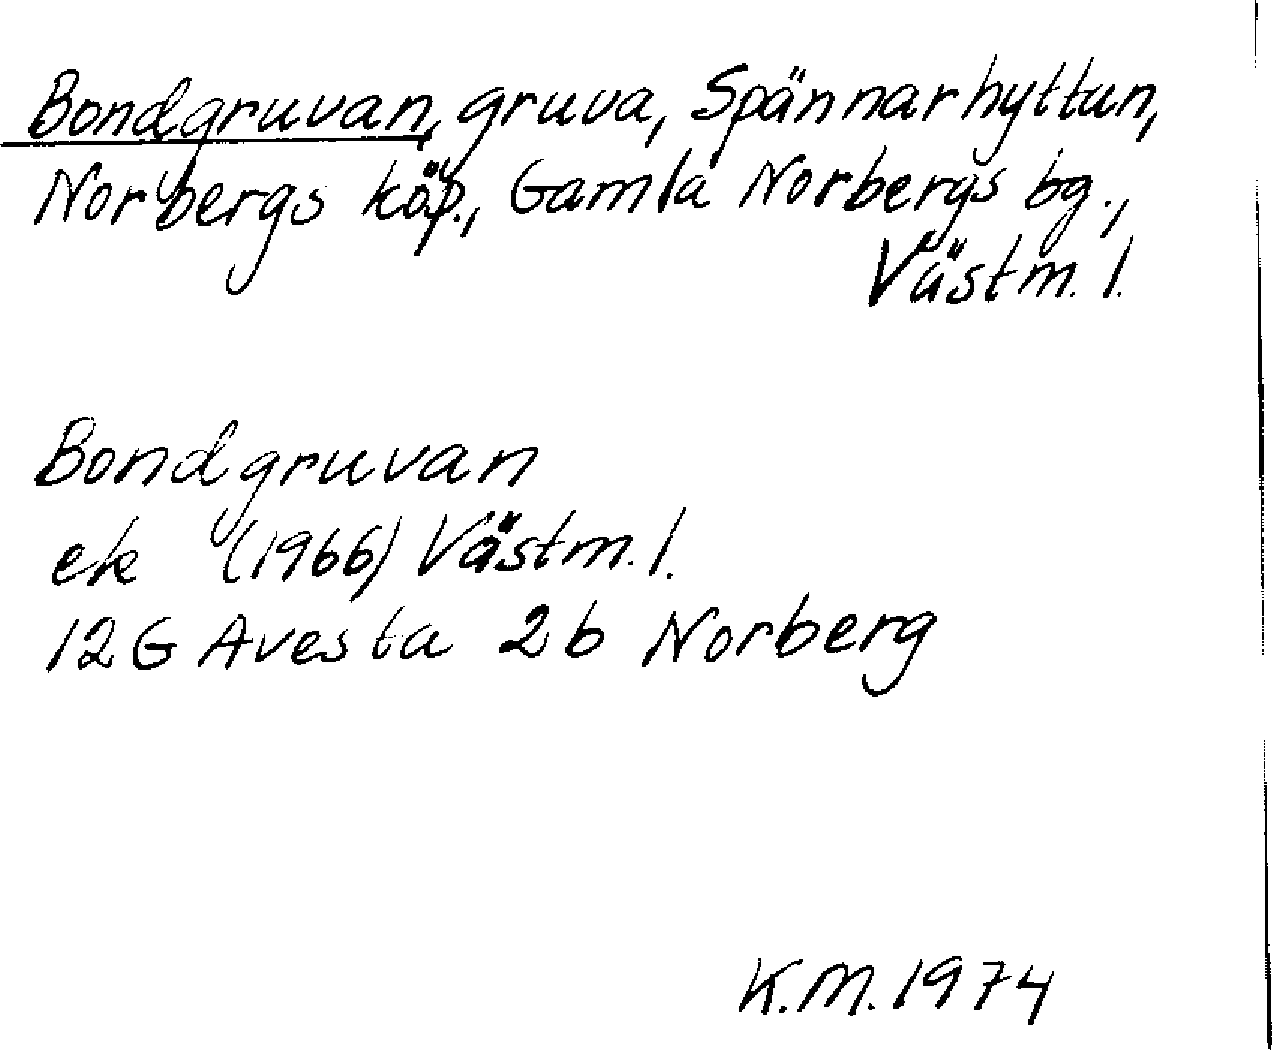 Bondgruvan, gruva, Spännarhyttan,
Norbergs köp., Gamla Norbergs bg.,
Västm. l.
Bondgruvan
ek (1966) Västm. l.
12G Avesta 2b Norberg
K.M. 1974